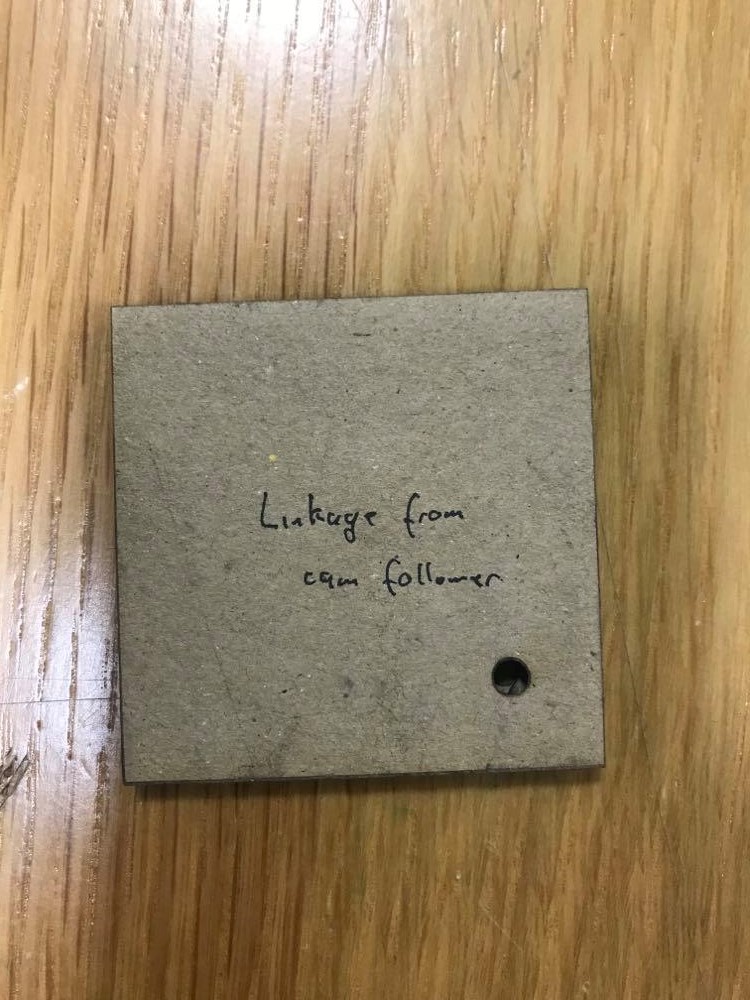 Linkage from
cam follower